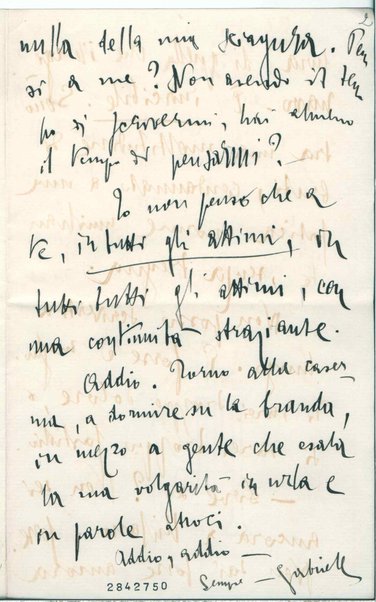 2
nulla della mia sciagura. Pen
si a me? Non avendo il tem
po di scrivermi, hai almeno
il tempo di pensarmi?
Io non penso che a
te, in tutti gli attimi, in
tutti tutti gli attimi, con
una continuità straziante.
Addio. Torno alla caser
ma, a dormire su la branda,
in mezzo a gente che esala
la sua volgarità in urla e
in parole atroci.
Addio, addio —
Sempre — Gabriele
2842750